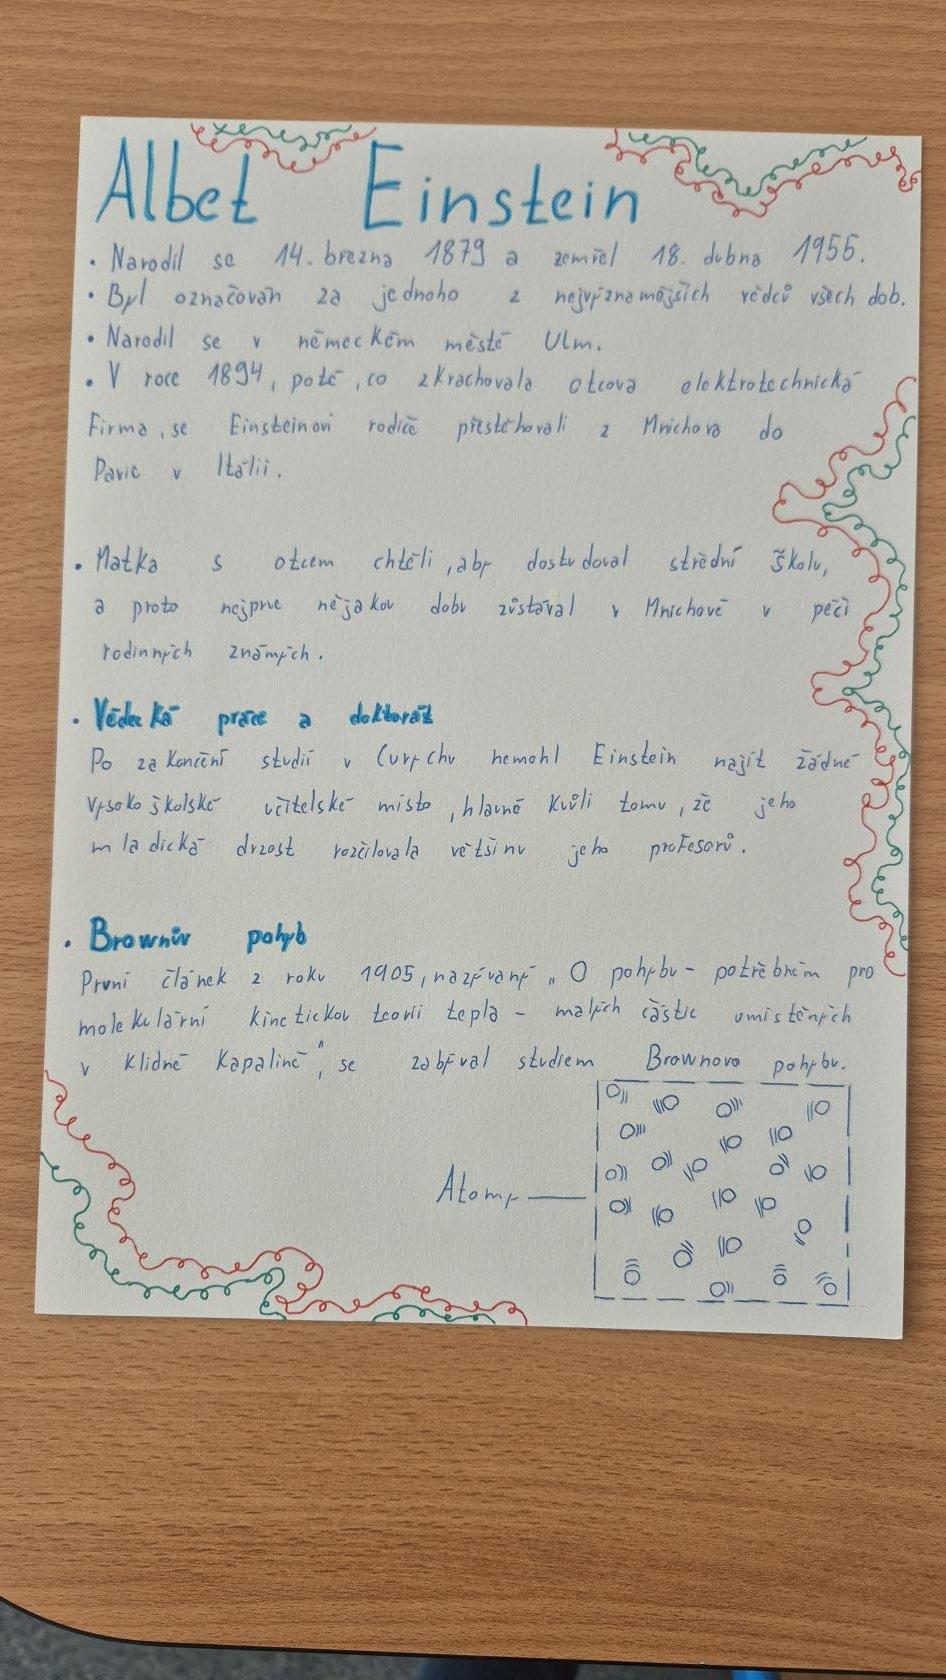 Albet Einstein
• Narodil se 14. března 1879 a zemřel 18. dubna 1955.
• Byl označován za jednoho z nejvýznamějších vědců všech dob.
• Narodil se v německém městě Ulm.
• V roce 1894, poté, co zkrachovala otcova elektrotechnická
Firma, se Einsteinovi rodiče přestěhovali z Mnichova do
Pavie v Itálii.
• Matka s otcem chtěli, aby dostudoval střední školu,
a proto nejprve nějakou dobu zůstával v Mnichově v péči
rodinných známých.
• Vědecká práce a doktorát
Po zakončení studií v Curychu nemohl Einstein najít žádné
vysokoškolské učitelské místo, hlavně kvůli tomu, že jeho
mladická drzost rozčilovala většinu jeho profesorů.
• Brownův pohyb
První článek z roku 1905, nazývaný „O pohybu - potřebném pro
molekulární kinetickou teorii tepla - malých částic umístěných
v klidné kapalině", se zabýval studiem Brownova pohybu.
Atomy